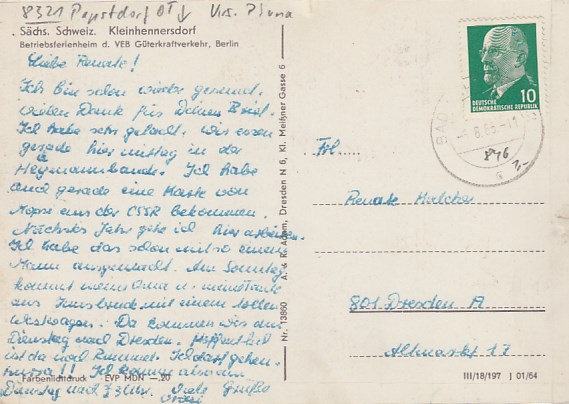 8321 Papstdorf OT ↓ Krs. Pirna
Sächs. Schweiz. Kleinhennersdorf
Betriebsferienheim d. VEB Güterkraftverkehr, Berlin
Liebe Renate!
Ich bin schon wieder gesund,
vielen Dank für Deinen Brief.
Ich habe sehr gelacht. Wir essen
gerade hier mittag in der
Ich habe
und gerade eine Karte von
Mopse aus der CSSR bekommen.
Nächstes Jahr gehe ich hier arbeiten.
Ich habe das schon mit so einem
Mann ausgemacht. Am Sonntag
kommt meine Oma u. meine Tante
aus Innsbruck mit einem tollen
Westwagen. Da kommen wir am
Dienstag nach Dresden. Hoffentlich
ist da noch Rummel. Ich darf gehen.
hurra!! Ich komme also am
Dienstag nach Viele Grüße
Farbenlichtdruck EVP MDN —.20
Nr. 13860 A. & R. Adam, Dresden N 6, Kl. Meißner Gasse 6
DEUTSCHE
DEMOKRATISCHE REPUBLIK
10
BAD
846
1,-
Frl.
Renate
801 Dresden A
Altmarkt 17
III/18/197 J 01/64